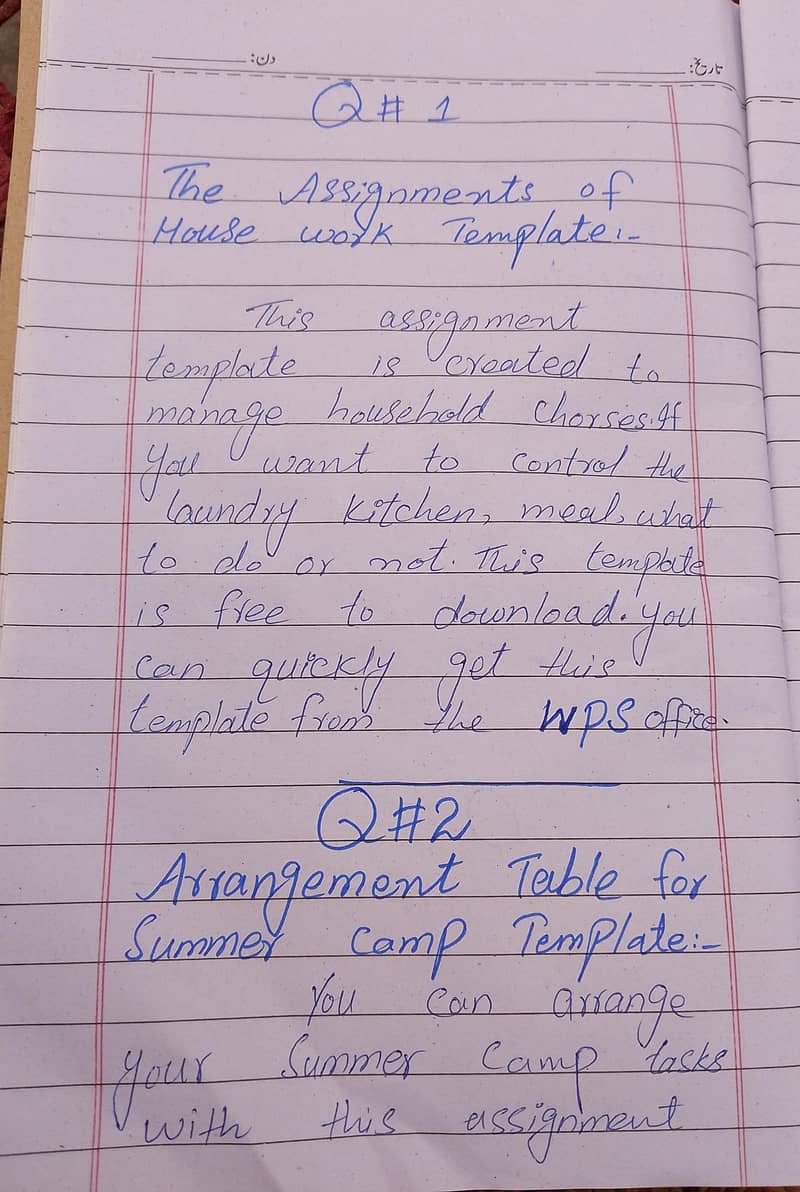 دن: تاریخ:
Q# 1
The Assignments of
House work Template:-
This assignment
template is created to
manage household Chorses. If
you want to control the
laundry kitchen, meal, what
to do or not. This template
is free to download. you
can quickly get this
template from the WPS office.
Q#2
Arrangement Table for
Summer Camp Template:-
You can arrange
your Summer Camp tasks
with this assignment